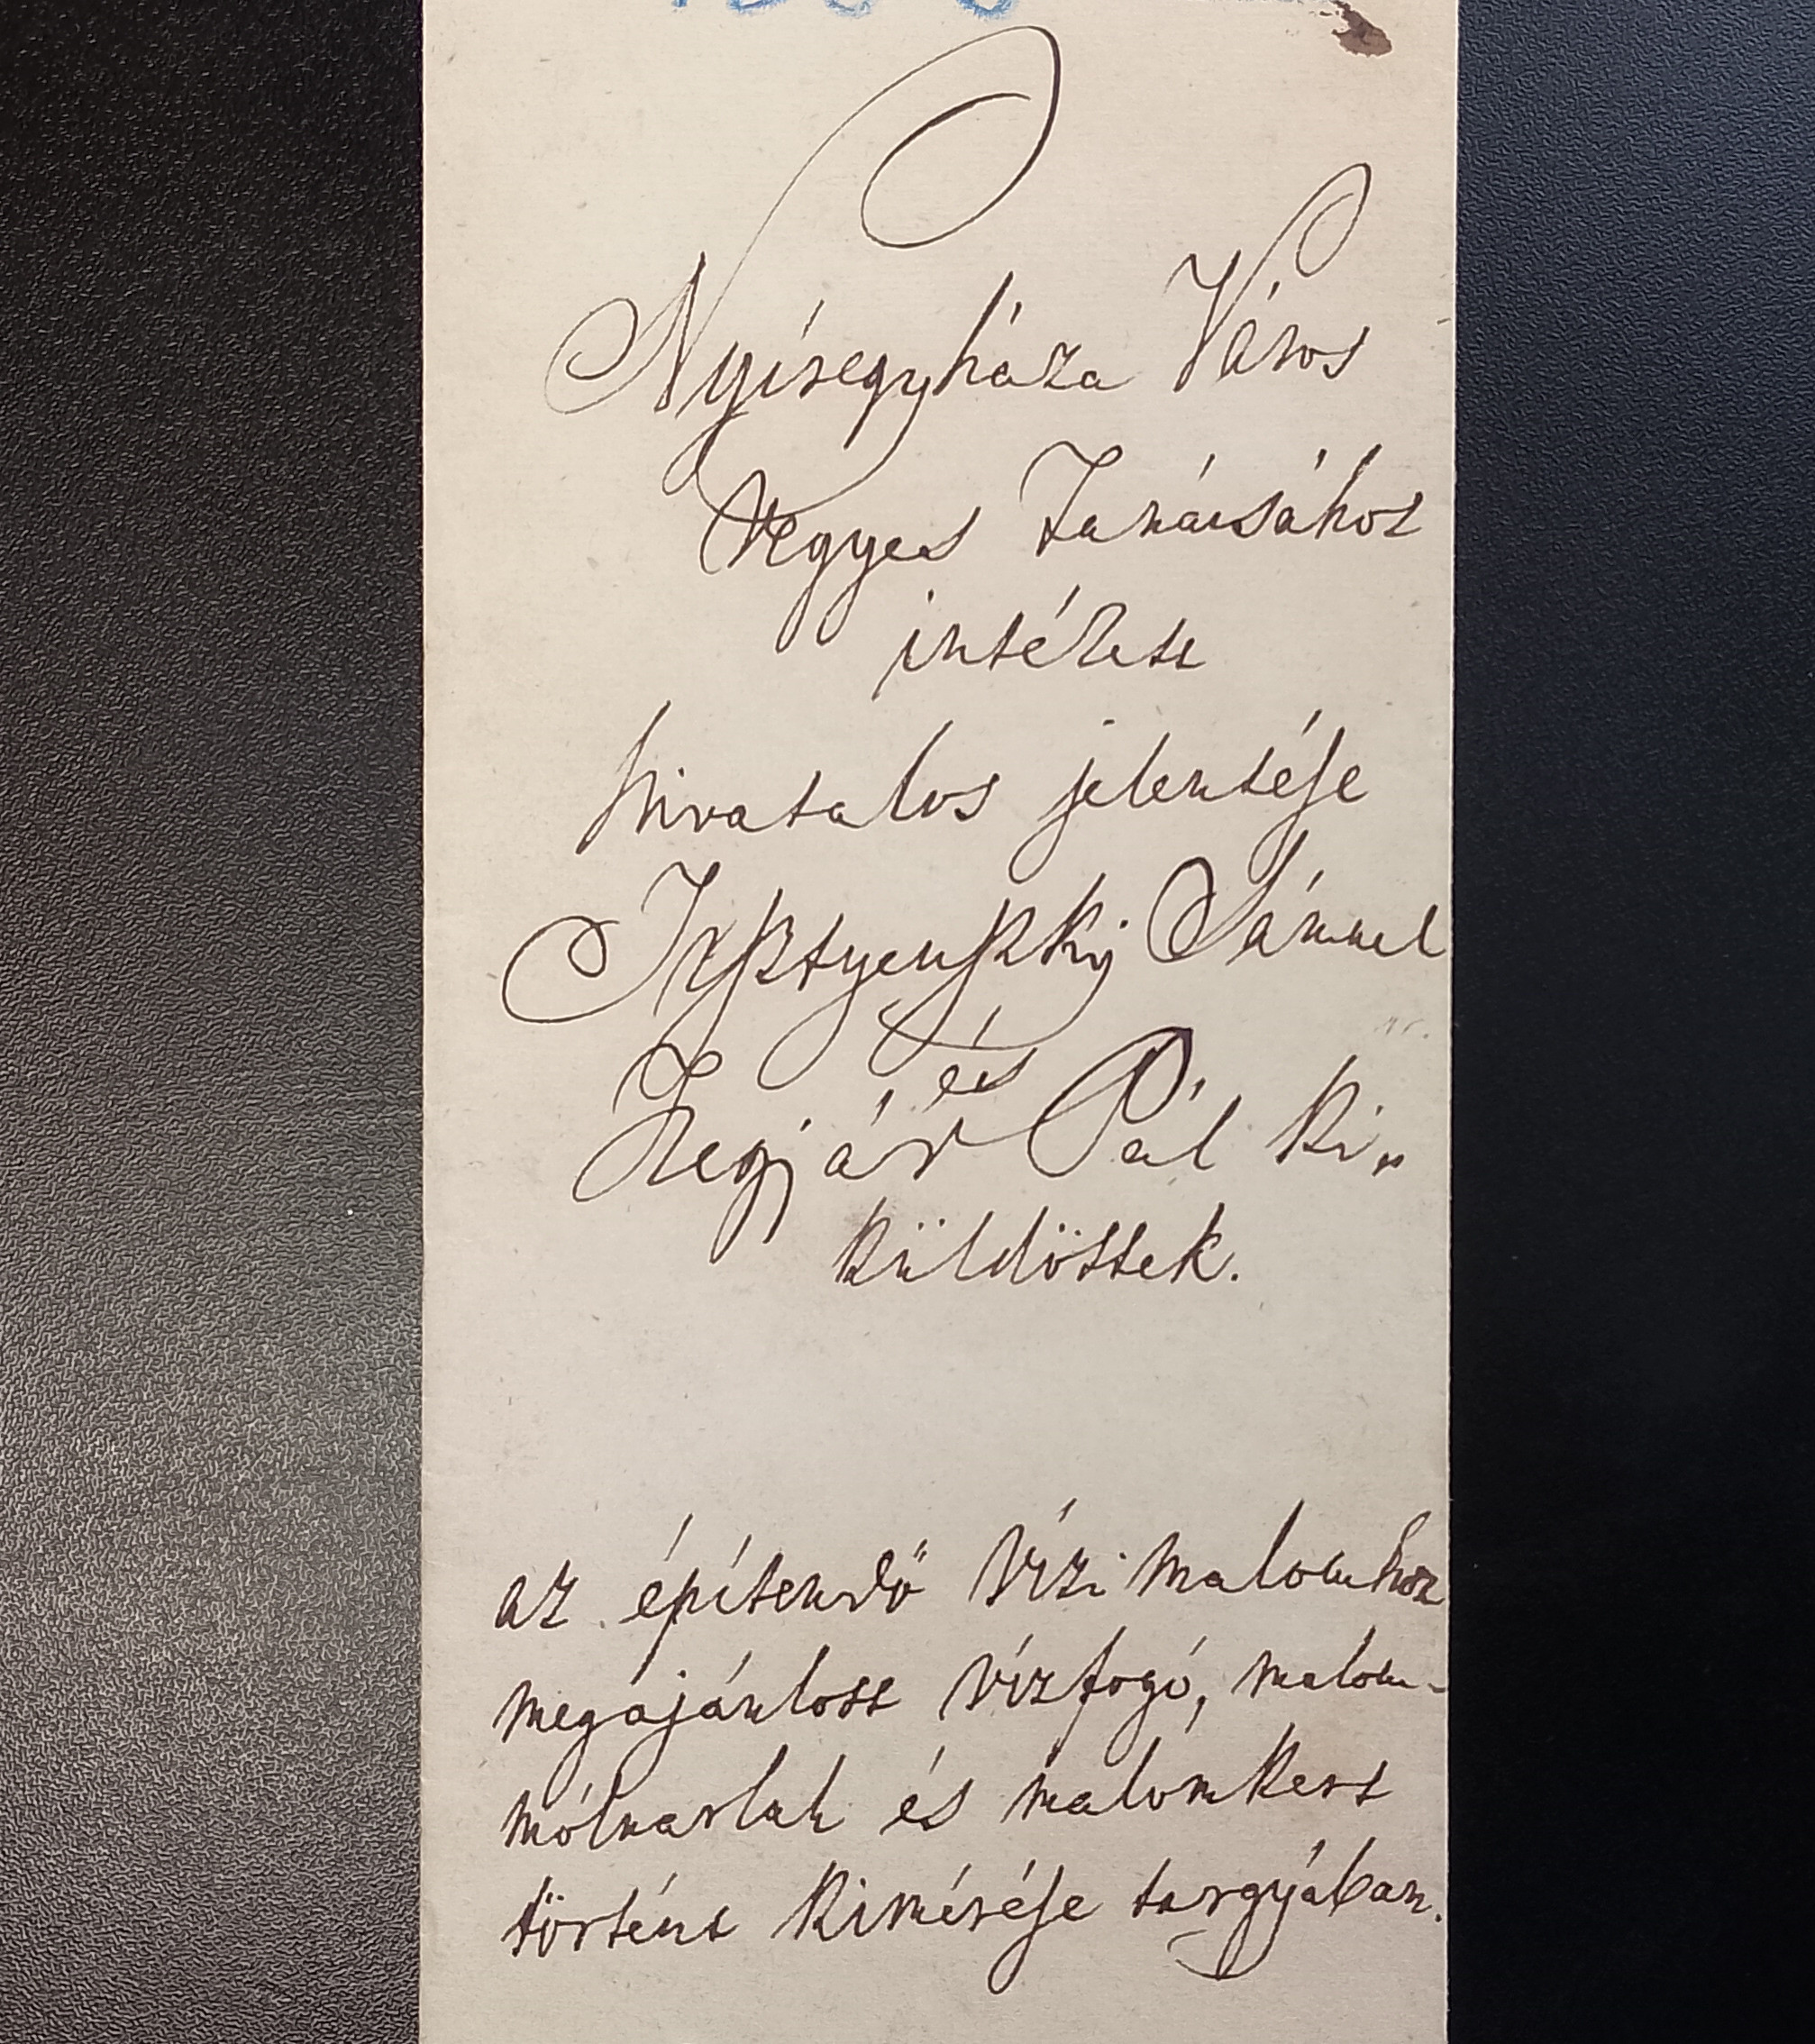 Nyíregyháza Város
Vegyes Tanácsához
intézett
hivatalos jelentése
Sámuel
és
Pál ki„
küldöttek.
az építendő vízi malomhoz
megajánlott vízfogó, malom-
mólnarlak és malomkert
történt kimérése targyában.